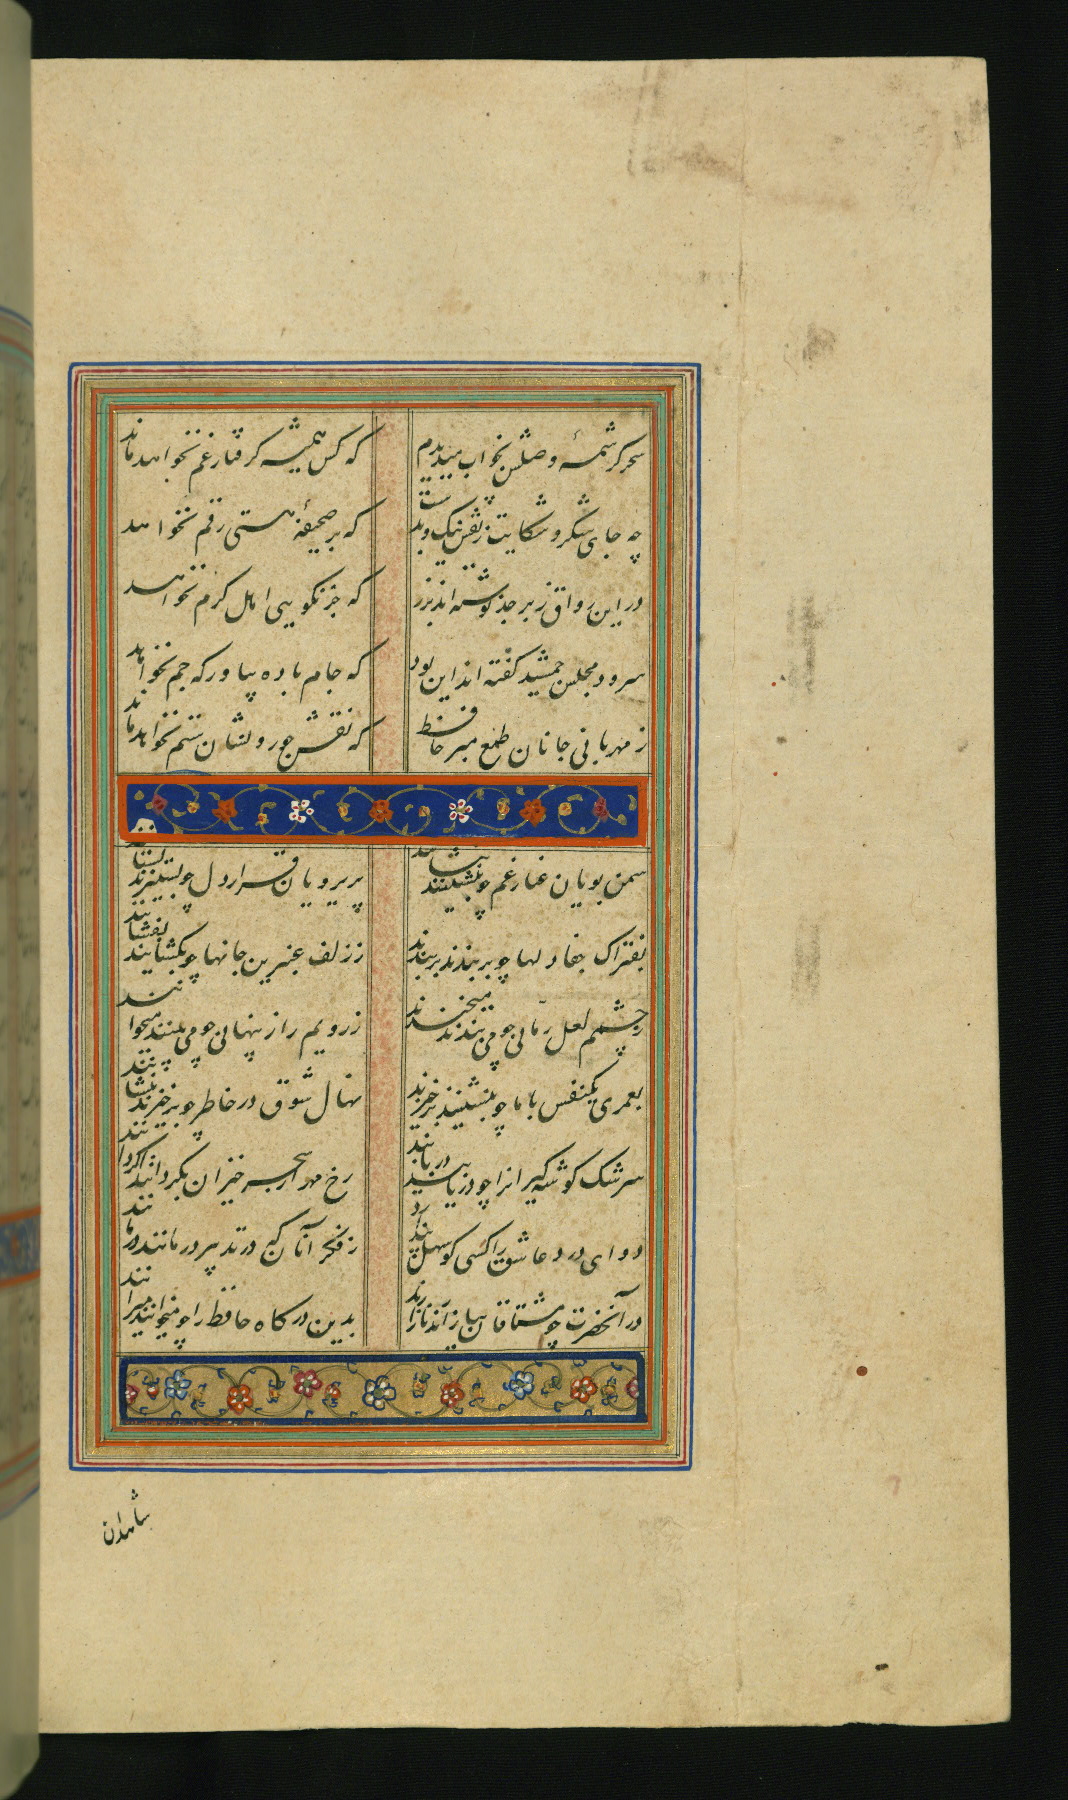 سحر کرشمهٔ وصلش بخواب میدیدم
که کس همیشه گرفتار غم نخواهد ماند
چه جای شکر و شکایت ز نقش نیک و بدست
که بر صحیفهٔ هستی رقم نخواهد
درین رواق زبرجد نوشته‌اند بزر
که جز نکویی اهل کرم نخواهد
سرود مجلس جمشید گفته‌اند این بود
که جام باده بیاور که جم نخواهد ماند
ز مهربانی جانان طمع مبر حافظ
که نقش جور و نشان ستم نخواهد ماند
سمن بویان غبار غم چو بنشینند بنشانند
پریرویان قرار دل چو بستیزند بستانند
بفتراک جفا دلها چو بربندند بربندند
ز زلف عنبرین جانها چو بگشایند بفشانند
ز چشمم لعل رمانی چو می بندند میخندند
ز رویم راز پنهانی چو می بینند میخوانند
بعمری یکنفس با ما چو بنشینند برخیزند
نهال شوق در خاطر چو برخیزند بنشانند
سرشک گوشه گیرانرا چو دریابند دریابند
رخ مهر از سحرخیزان نگردانند اگر دانند
دوای درد عاشق را کسی کو سهل پندارد
ز فکر آنان که در تدبیر درمانند درمانند
در آنحضرت چو مشتاقان نیاز آرند ناز آرند
بدین درگاه حافظ را چو میخوانند میرانند
شاهدان